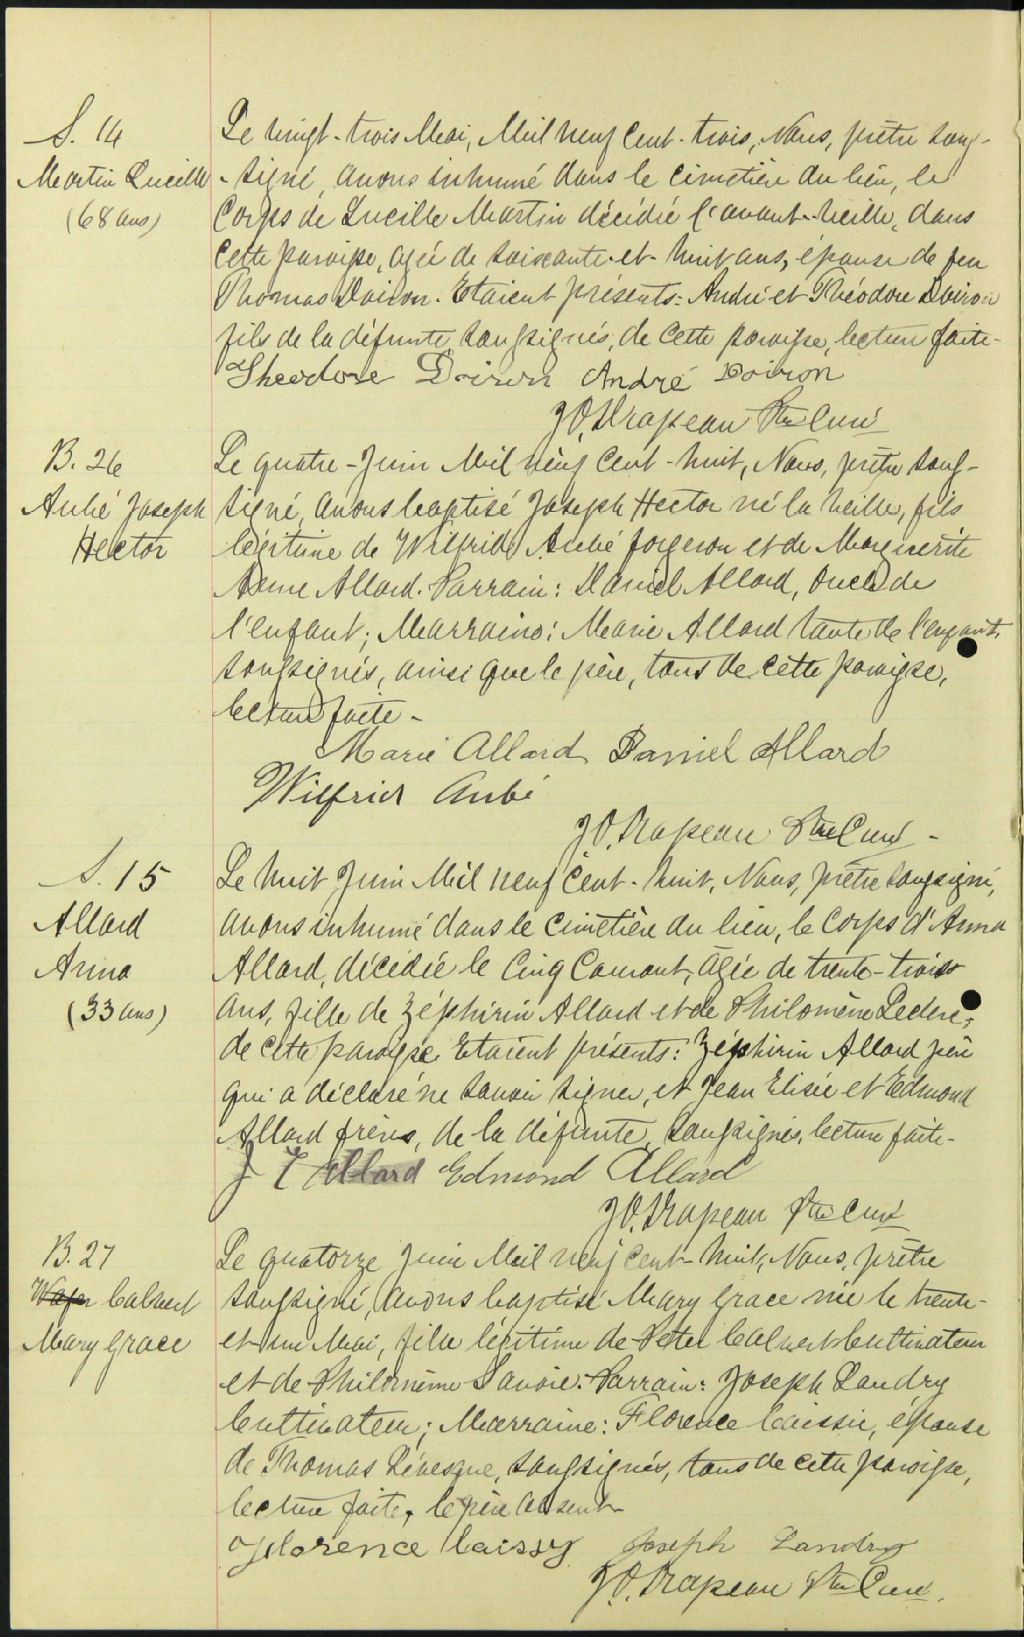 S. 14
Martin Lucille
(68 ans)
Le vingt-trois Mai, Mil neuf Cent-trois, Nous, prêtre sous-
signé, avons inhumé dans le Cimetière du lieu, le
Corps de Lucille Martin décédée l'avant-veille, dans
Cette paroisse, agée de soixante-et-huit ans, épouse de feu
Thomas Doiron. Etaient présents: André et Théodore Doiron
fils de la défunte soussignés, de cette paroisse, lecture faite-
Theodore Doiron André Doiron
J.O. Drapeau Ptre Curé
B. 26
Aubé Joseph
Hector
Le quatre-Juin Mil neuf Cent-huit, Nous, prêtre sous-
signé, avons baptisé Joseph Hector né la veille, fils
légitime de Wilfrid Aubé forgeron et de Marguerite
Anne Allard. Parrain: Daniel Allard, oncle de
l'enfant; Marraine: Marie Allard tante de l'enfant,
soussignés, ainsi que le père, tous de cette paroisse,
lecture faite-
Marie Allard Daniel Allard
Wilfrid Aubé
J.O. Drapeau Ptre Curé-
S. 15
Allard
Anna
(33 ans)
Le huit Juin Mil neuf Cent-huit, Nous, prêtre soussigné,
avons inhumé dans le Cimetière du lieu, le Corps d'Anna
Allard, décédée le Cinq Courant, agée de trente-trois
ans, fille de Zéphirin Allard et de Philomène Leclerc,
de cette paroisse. Etaient présents: Zéphirin Allard père
qui a déclaré ne savoir signer, et Jean Elisée et Edmond
Allard frères, de la défunte, soussignés, lecture faite-
J E Allard Edmond Allard
J.O. Drapeau Ptre Curé
B. 27
Calvert
Mary Grace
Le quatorze Juin Mil neuf Cent-huit, Nous, prêtre
soussigné, avons baptisé Mary Grace née le trente-
et-un Mai, fille légitime de Peter Calvert Cultivateur
et de Philomène Savoie. Parrain: Joseph Landry
Cultivateur; Marraine: Florence Caissie, épouse
de Thomas Lévesque, soussignés, tous de cette paroisse,
lecture faite, le père absent
Florence Caissy Joseph Landry
J.O. Drapeau Ptre Curé.